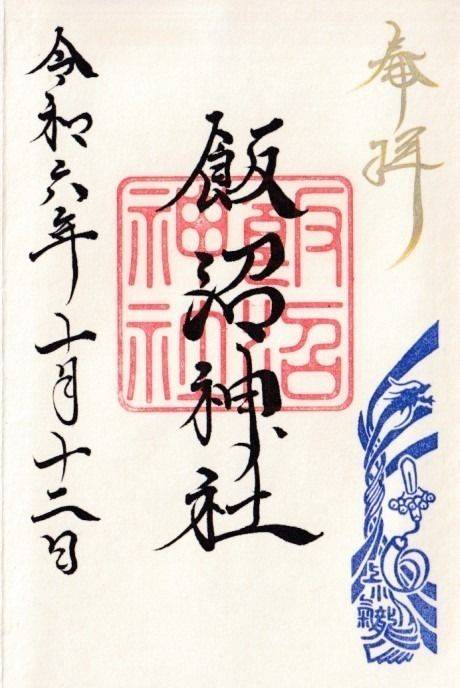 奉拝
飯沼神社
飯沼
神社
令和六年十月十二日